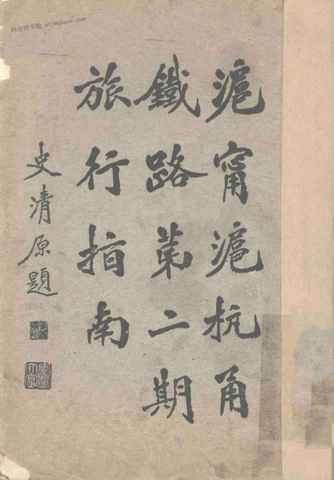 滬甯滬杭甬
鐵路第二期
旅行指南
史清原題